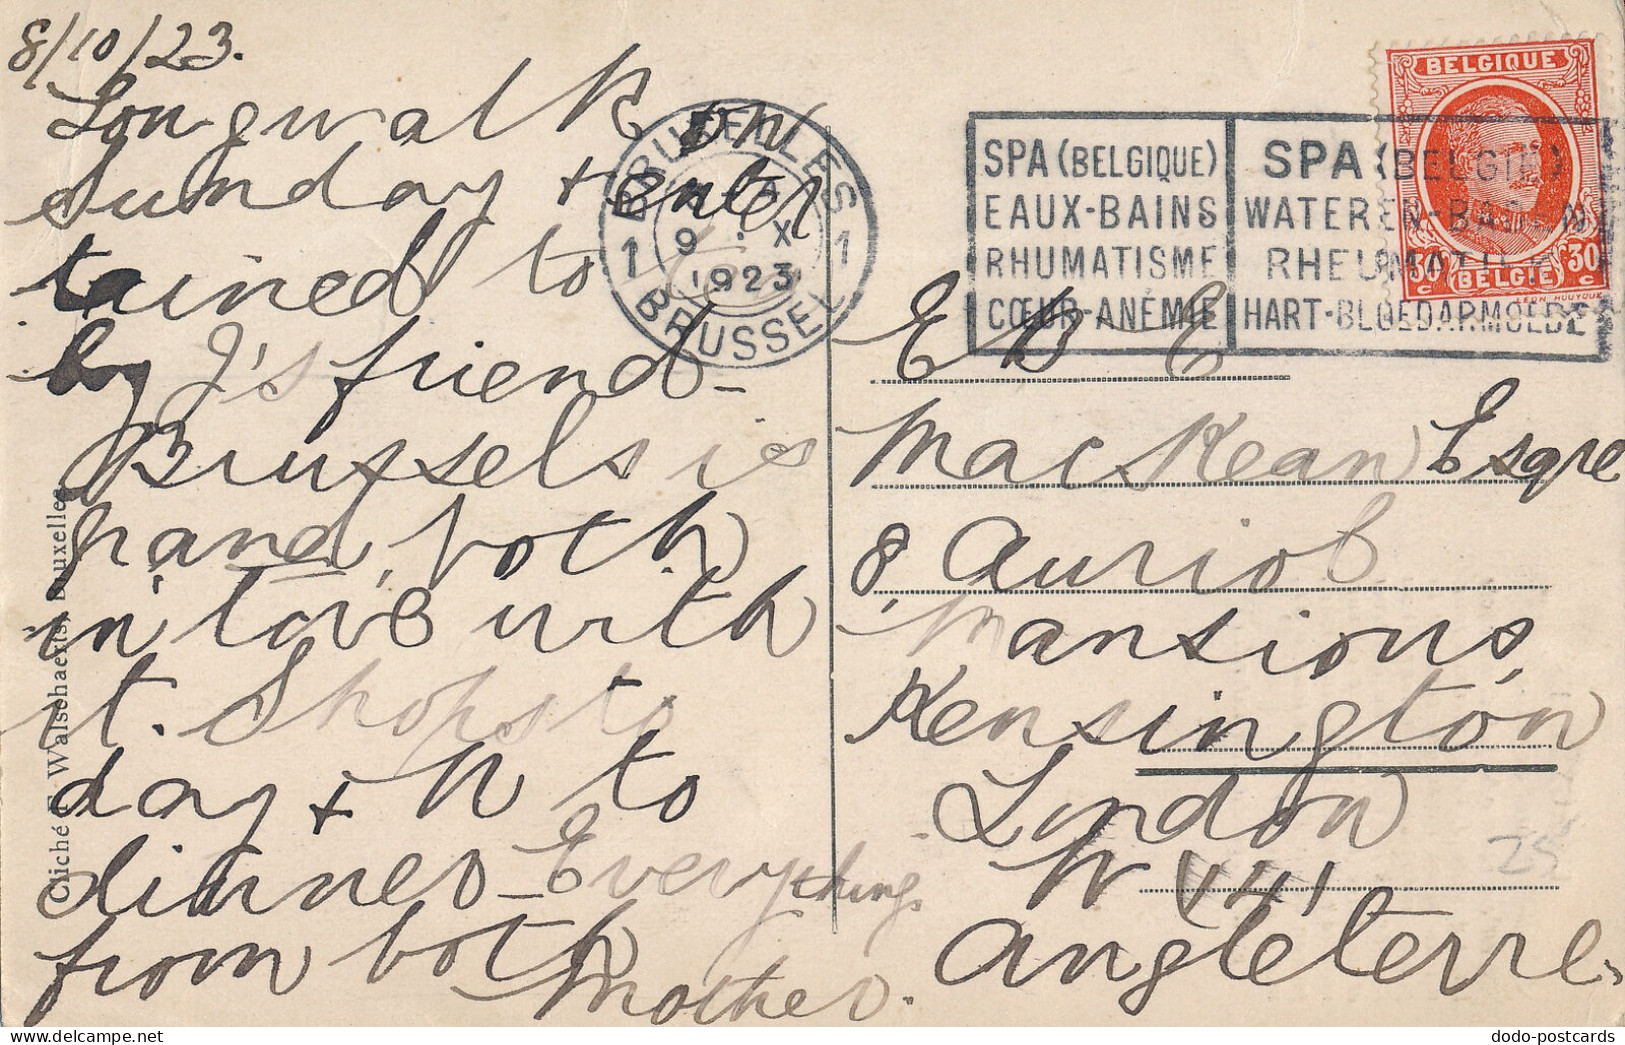 8/10/23.
Long walk on
Sunday + enter
tained to
by J's friend –
Brussels is
grand, both
in love with
it. Shops to
day + N to
dinner – Everything
from both
Mother.
Cliché E. Walschaerts, Bruxelles
BRUXELLES
1 1
9 · X
1923
BRUSSEL
SPA (BELGIQUE)
EAUX-BAINS
RHUMATISME
CŒUR-ANÉMIE
SPA (BELGIË)
WATEREN-BADEN
RHEUMATIEK
HART-BLOEDARMOEDE
BELGIQUE
30 c BELGIË 30 c
LEON HOUYOUX
E B E
MacKean Esqre
8, Auriol
Mansions,
Kensington
London
W
Angleterre.
25
dodo-postcards